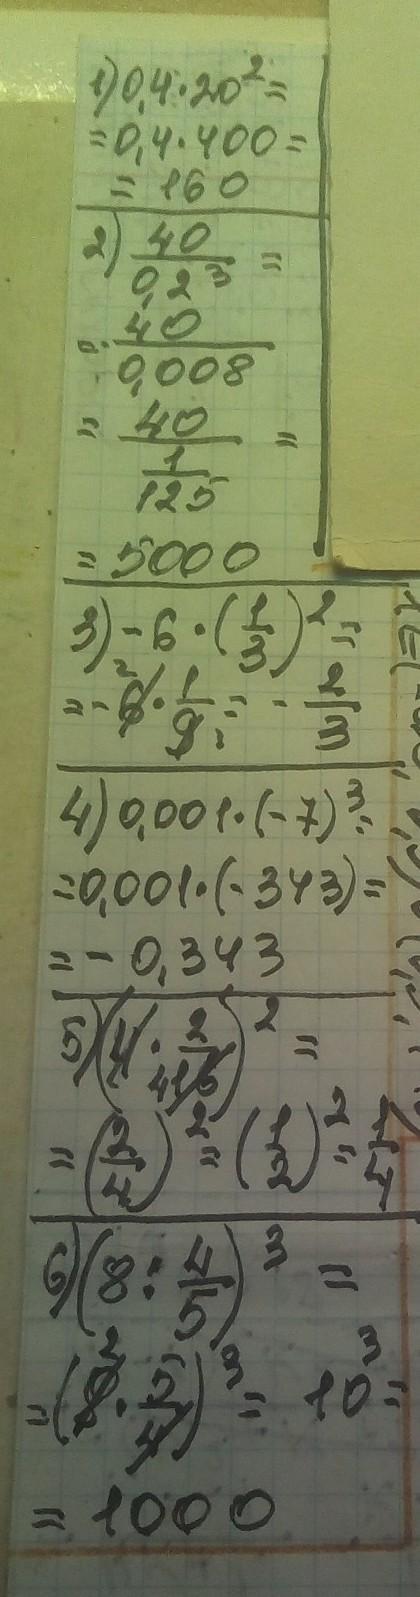 1) 0,4·20² =
= 0,4·400 =
= 160
2) 40/0,2³ =
= 40/0,008
= 40/(1/125) =
= 5000
3) -6·(1/3)² =
= -6²·1/9 = -2/3
4) 0,001·(-7)³ =
= 0,001·(-343) =
= -0,343
5) (4·2/416)² =
= (2/4)² = (1/2)² = 1/4
6) (8:4/5)³ =
= (8²·5/4)³ = 10³ =
= 1000